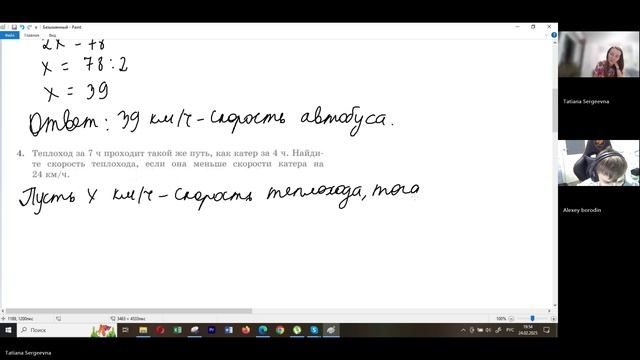 Безымянный - Paint
Файл Главная Вид
2x = 78
x = 78 : 2
x = 39
Ответ: 39 км/ч - скорость автобуса.
4. Теплоход за 7 ч проходит такой же путь, как катер за 4 ч. Найди-
те скорость теплохода, если она меньше скорости катера на
24 км/ч.
Пусть x км/ч - скорость теплохода, тога
Tatiana Sergeevna
Alexey borodin
1188, 1200пкс
3465 × 4533пкс
100%
Поиск
РУС
19:54
24.02.2025
Tatiana Sergeevna